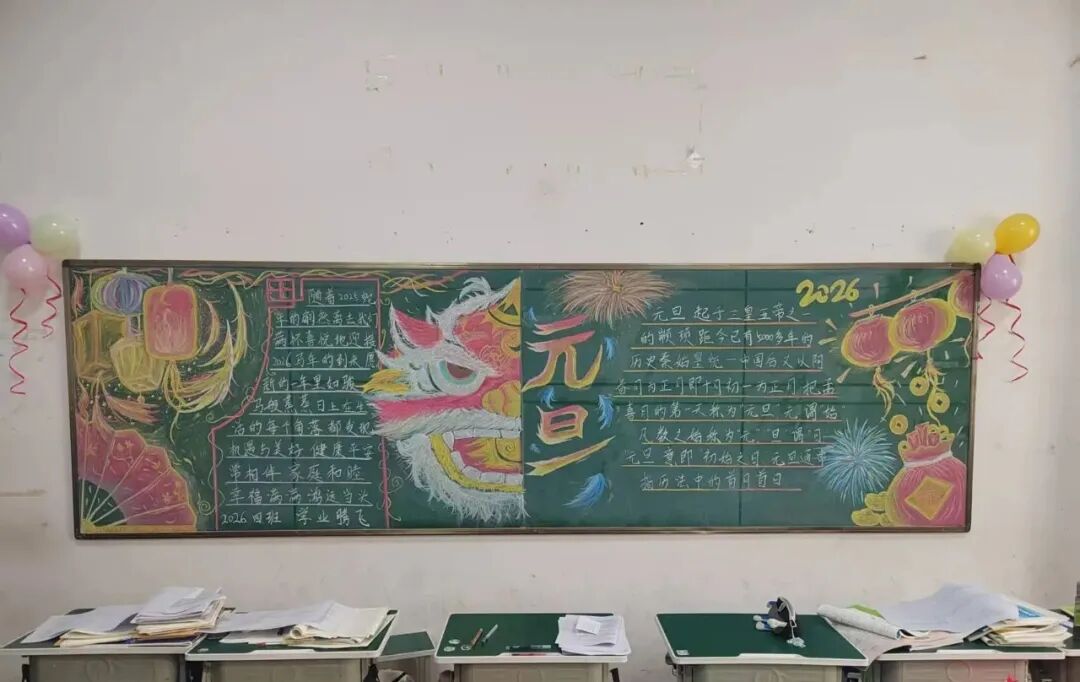 随着2025蛇
年的悄然离去我们
满怀喜悦地迎接
2026马年的到来愿
新的一年里如骏
马般蒸蒸日上在生
活的每个角落都发现
机遇与美好 健康平安
常相伴 家庭和睦
幸福满满 鸿运当头
2026 四班 学业腾飞
元旦
2026
元旦 起于三皇五帝之一
的颛顼距今已有3000多年的
历史秦始皇统一中国后又以阴
春月为正月即十月初一为正月把孟
春月的第一天称为元旦"元"谓"始"
凡数之始称为"元""旦"谓"日"
"元旦"意即"初始之日"元旦通常
指历法中的首月首日